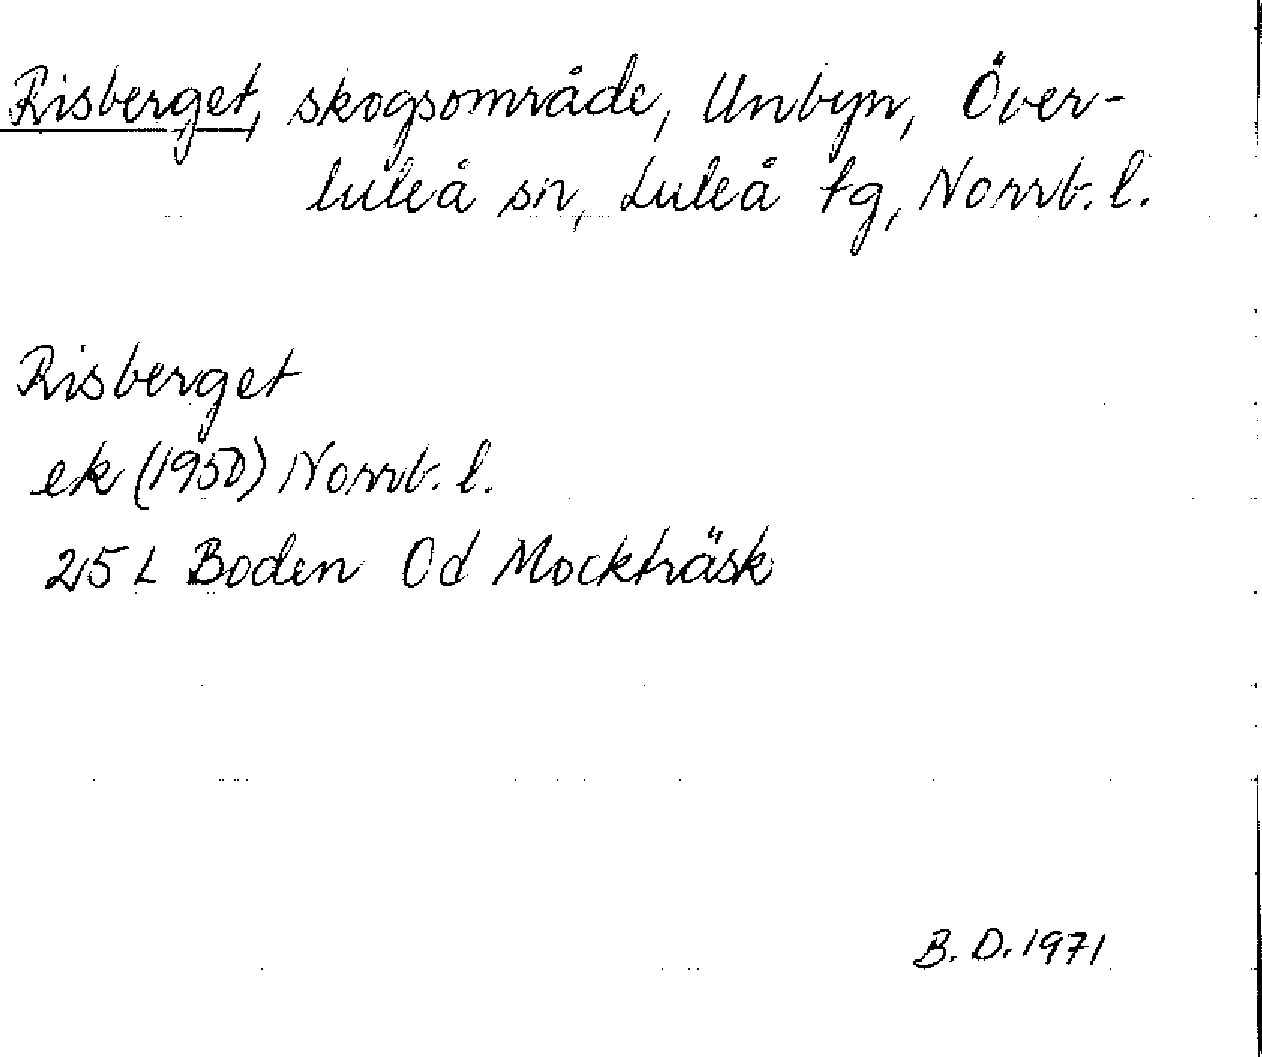 Risberget, skogsområde, Unbyn, Över-
luleå sn, Luleå tg, Norrb. l.
Risberget
ek (1950) Norrb. l.
25 L Boden 0d Mockträsk
B. D. 1971